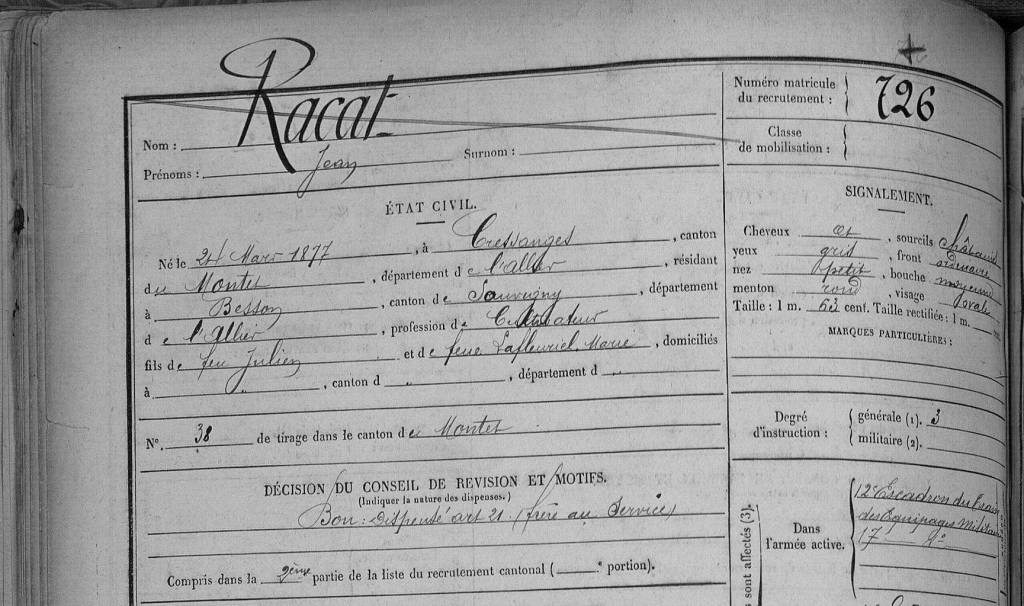 Nom : Racat
Prénoms : Jean Surnom :
ÉTAT CIVIL.
Né le 24 Mars 1877, à Cressanges, canton
du Montet, département de l'Allier, résidant
à Besson, canton de Souvigny, département
de l'Allier, profession de Cultivateur
fils de feu Julien et de feue Lafleuriel Marie, domiciliés
à " , canton d " , département d "
N° 38 de tirage dans le canton de Montet
DÉCISION DU CONSEIL DE REVISION ET MOTIFS.
(Indiquer la nature des dispenses.)
Bon : Dispensé art 21 (frère au Service)
Compris dans la 2ème partie de la liste du recrutement cantonal ( e portion).
Numéro matricule
du recrutement : 726
Classe
de mobilisation :
SIGNALEMENT.
Cheveux et, sourcils châtains
yeux gris, front ordinaire
nez petit, bouche moyenne
menton rond, visage oval
Taille : 1 m. 63 cent. Taille rectifiée : 1 m.
MARQUES PARTICULIÈRES :
Degré
d'instruction :
générale (1). 3
militaire (2).
sont affectés (3).
Dans
l'armée active.
12e Escadron du Train
des Equipages Militaires